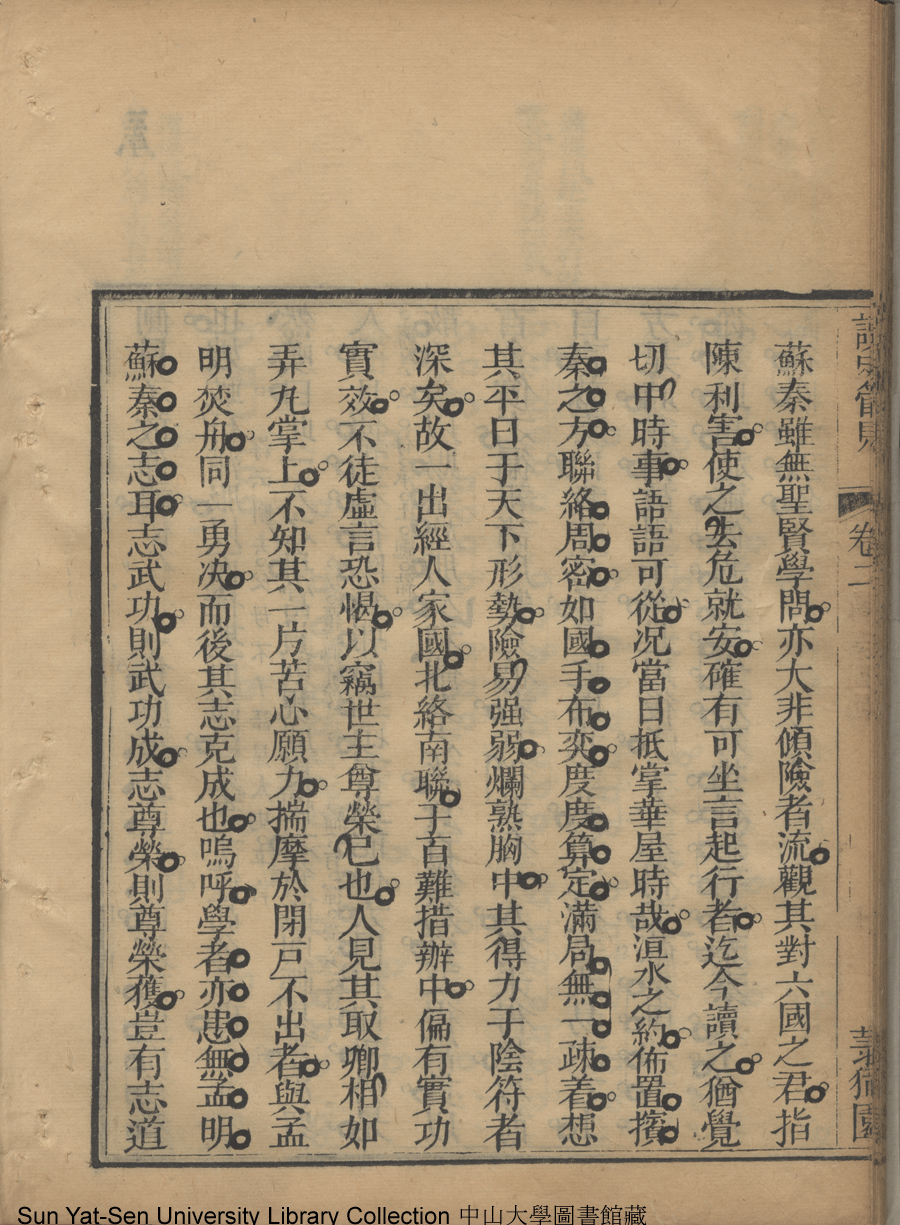 卷二
蘇秦雖無聖賢學問亦大非傾險者流觀其對六國之君指
陳利害使之去危就安確有可坐言起行者迄今讀之猶覺
切中時事語語可從况當日抵掌華屋時哉洹水之約佈置擯
秦之方聯絡周密如國手布奕度度算定滿局無一疎着想
其平日于天下形勢險易强弱爛熟胸中其得力于陰符者
深矣故一出經人家國北絡南聯于百難措辦中偏有實功
實效不徒虛言恐愒以竊世主尊榮已也人見其取卿相如
弄丸掌上不知其一片苦心願力揣摩於閉戸不出者與孟
明焚舟同一勇决而後其志克成也嗚呼學者亦患無孟明
蘇秦之志耳志武功則武功成志尊榮則尊榮獲豈有志道
Sun Yat-Sen University Library Collection 中山大學圖書館藏